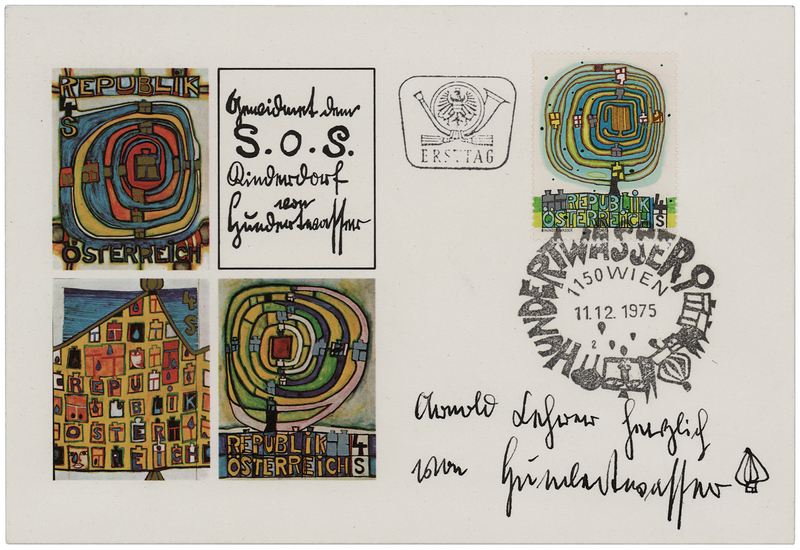 REPUBLIK
4
S
ÖSTERREICH
Gewidmet dem
S.O.S.
Kinderdorf
von
Hundertwasser
ERSTTAG
REPUBLIK 4
ÖSTERREICH S
HUNDERTWASSER
1150 WIEN
11.12.1975
2
4
S
REPUBLIK
ÖSTERREICH
REPUBLIK 4
ÖSTERREICH S
Arnold Lehrer herzlich
von Hundertwasser